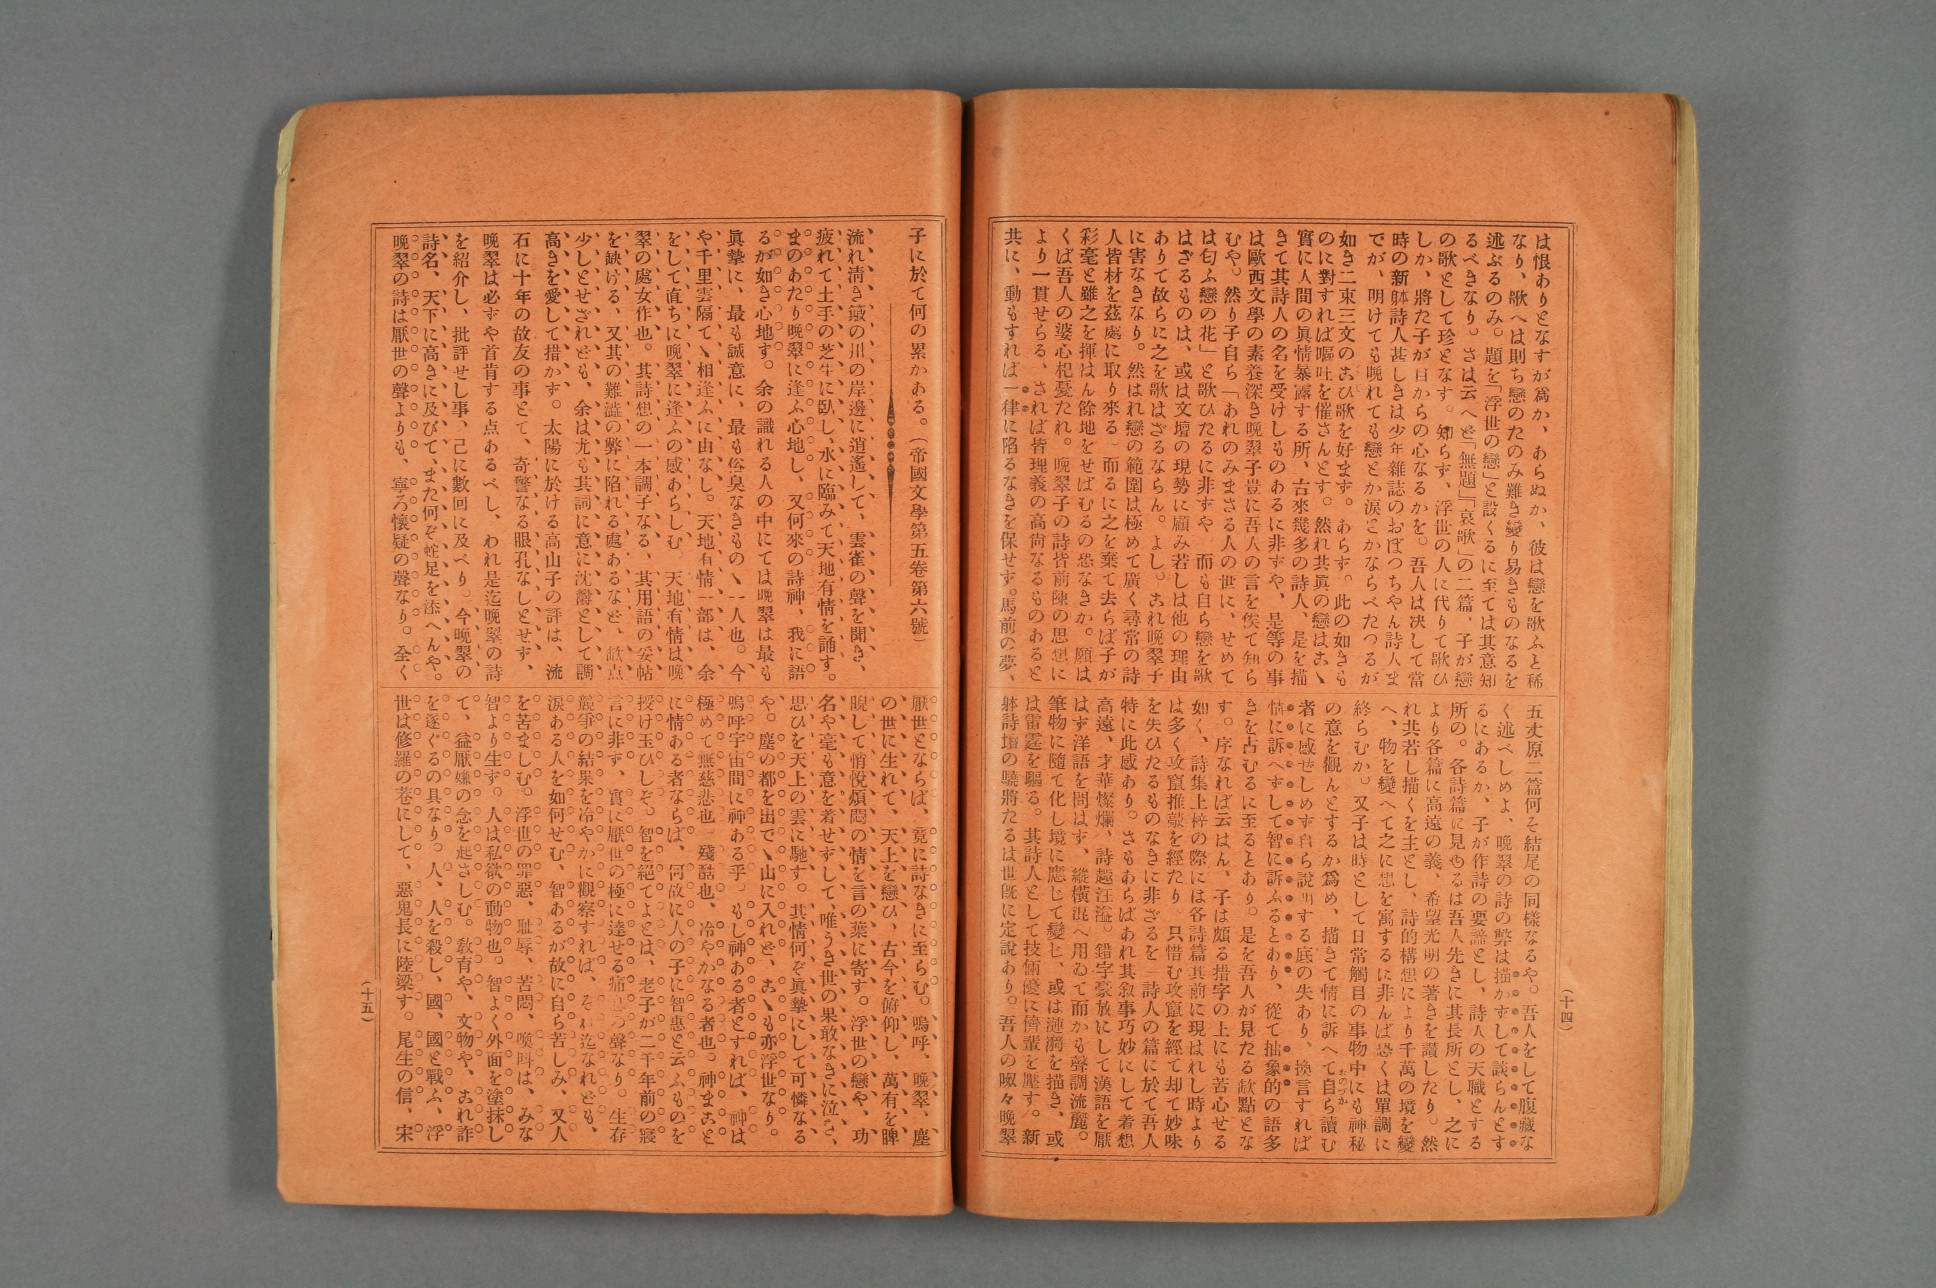 は恨ありとなすが爲か、あらぬか、彼は戀を歌ふと稀
なり、歌へは則ち戀のたのみ難き變り易きものなるを
述ぶるのみ。題を「浮世の戀」と設くるに至ては其意知
るべきなり。さは云へど「無題」「哀歌」の二篇、子が戀
の歌として珍となす。知らず、浮世の人に代りて歌ひ
しか、將た子が自からの心なるかを。吾人は决して當
時の新躰詩人甚しきは少年雜誌のおぼつちやん詩人ま
でが、明けても暁れても戀とか涙とかならべたつるが
如き二束三文のこひ歌を好まず。あらず。此の如きも
のに對すれば嘔吐を催さんとす。然れ共眞の戀はこゝ
實に人間の眞情暴露する所、古來幾多の詩人、是を描
きて其詩人の名を受けしものあるに非ずや、是等の事
は歐西文學の素養深き晩翠子豈に吾人の言を俟て知ら
むや。然り子自ら「あれのみまさる人の世に、せめて
は匂ふ戀の花」と歌ひたるに非ずや 而も自ら戀を歌
はざるものは、或は文壇の現勢に顧み若しは他の理由
ありて故らに之を歌はざるならん。よし。これ晩翠子
に害なきなり。然はれ戀の範圍は極めて廣く尋常の詩
人皆材を茲處に取り來る 而るに之を棄て去らば子が
彩毫と雖之を揮はん餘地をせばむるの恐なきか。願は
くば吾人の婆心杞憂たれ。晩翠子の詩皆前陳の思想に
より一貫せらる、されば皆理義の高尙なるものあると
共に、動もすれば一律に陷るなきを保せず。馬前の夢、
五丈原二篇何そ結尾の同樣なるや。吾人をして腹藏な
く述べしめよ、晩翠の詩の弊は描かずして談らんとす
るにあるか、子が作詩の要諦とし、詩人の天職とする
所の。各詩篇に見ゆるは吾人先きに其長所とし、之に
より各篇に高遠の義、希望光明の著きを讃したり。然
れ共若し描くを主とし、詩的構想により千萬の境を變
へ、物を變へて之に想を寓するに非んば恐くは單調に
終らむか。又子は時として日常觸目の事物中にも神秘
の意を觀んとするか爲め、描きて情に訴へて自ら讀む
者に感ぜしめず自ら說明する底の失あり、換言すれば
情に訴へずして智に訴ふるとあり、從て抽象的の語多
きを占むるに至るとあり。是を吾人が見たる欿點とな
す。序なれば云はん、子は頗る措字の上にも苦心せる
如く、詩集上梓の際には各詩篇其前に現はれし時より
は多く攻竄推敲を經たり 只惜む攻竄を經て却て妙味
を失ひたるものなきに非ざるを 詩人の篇に於て吾人
特に此感あり。さもあらばあれ其敘事巧妙にして着想
高遠、才華燦爛、詩趣汪溢。錯字豪放にして漢語を厭
はず洋語を問はず、縱橫混へ用ゐて而かも聲調流麗。
筆物に隨て化し境に應じて變じ、或は漣漪を描き、或
は雷霆を驅る。其詩人として技倆優に儕輩を壓す。新
躰詩壇の驍將たるは世旣に定說あり。吾人の呶々晩翠
(十四)
子に於て何の累かある。(帝國文學第五卷第六號)
流れ清き䉤の川の岸邊に逍遙して、雲雀の聲を聞き、
疲れて土手の芝生に臥し、水に臨みて天地有情を誦す。
まのあたり晩翠に逢ふ心地し、又何來の詩神、我に語
るが如き心地す。余の識れる人の中にては晩翠は最も
眞摯に、最も誠意に、最も俗臭なきものゝ一人也。今
や千里雲隔てゝ相逢ふに由なし。天地有情一部は、余
をして直ちに晩翠に逢ふの感あらしむ 天地有情は晩
翠の處女作也。其詩想の一本調子なる、其用語の妥帖
を缺ける、又其の難澁の弊に陷れる處あるなど、欿点
少しとせざれども、余は尤も其詞に意に沈欝として調
高きを愛して措かず。太陽に於ける高山子の評は、流
石に十年の故友の事とて、奇警なる眼孔なしとせず、
晩翠は必ずや首肯する点あるべし、われ是迄晩翠の詩
を紹介し、批評せし事、己に數回に及べり。今晩翠の
詩名、天下に高きに及びて、また何ぞ蛇足を添へんや。
晩翠の詩は厭世の聲よりも、寧ろ懷疑の聲なり。全く
厭世とならば、竟に詩なきに至らむ。嗚呼、晩翠、塵
の世に生れて、天上を戀ひ、古今を俯仰し、萬有を睥
睨して悄悅煩悶の情を言の葉に寄す。浮世の戀や、功
名や毫も意を着せずして、唯うき世の果敢なきに泣き、
思ひを天上の雲に馳す。其情何ぞ眞摯にして可憐なる
や。塵の都を出でゝ山に入れど、こゝも亦浮世なり。
嗚呼宇宙間に神ある乎 もし神ある者とすれば、神は
極めて無慈悲也 殘酷也、冷やかなる者也。神まこと
に情ある者ならば、何故に人の子に智惠と云ふものを
授け玉ひしぞ。智を絕てよとは、老子が二千年前の寢
言に非ず、實に厭世の極に達せる痛世の聲なり。生存
競爭の結果を冷やかに觀察すれば、それ迄なれども、
淚ある人を如何せむ、智あるが故に自ら苦しみ、又人
を苦ましむ。浮世の罪惡、耻辱、苦悶、喚叫は、みな
智より生ず。人は私欲の動物也。智よく外面を塗抹し
て、益厭嫌の念を起さしむ。敎育や、文物や、これ詐
を遂ぐるの具なり。人、人を殺し、國、國と戰ふ、浮
世は修羅の巷にして、惡鬼長に陸梁す。尾生の信、宋
(十五)